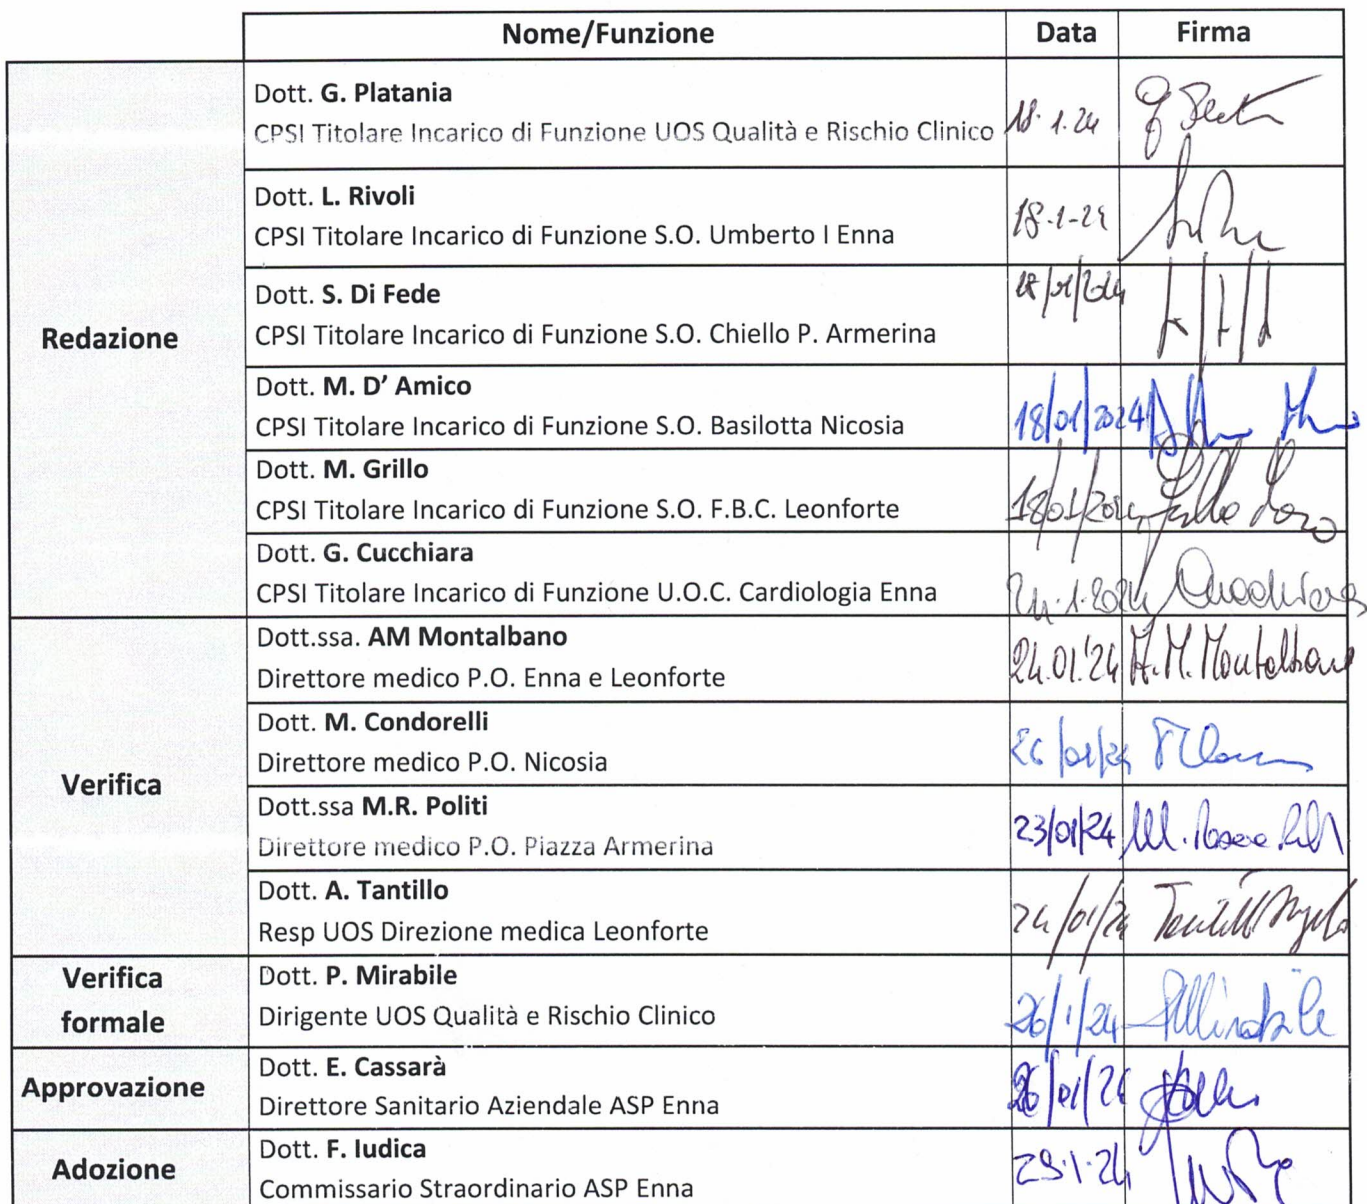 Nome/Funzione Data Firma
Redazione
Dott. G. Platania
CPSI Titolare Incarico di Funzione UOS Qualità e Rischio Clinico 18.1.24
Dott. L. Rivoli
CPSI Titolare Incarico di Funzione S.O. Umberto I Enna 18-1-24
Dott. S. Di Fede
CPSI Titolare Incarico di Funzione S.O. Chiello P. Armerina 18/01/2024
Dott. M. D' Amico
CPSI Titolare Incarico di Funzione S.O. Basilotta Nicosia 18/01/2024
Dott. M. Grillo
CPSI Titolare Incarico di Funzione S.O. F.B.C. Leonforte
Dott. G. Cucchiara
CPSI Titolare Incarico di Funzione U.O.C. Cardiologia Enna 24.1.2024 Cucchiara
Verifica
Dott.ssa. AM Montalbano
Direttore medico P.O. Enna e Leonforte 24.01.'24 A.M. Montalbano
Dott. M. Condorelli
Direttore medico P.O. Nicosia
Dott.ssa M.R. Politi
Direttore medico P.O. Piazza Armerina 23/01/24
Dott. A. Tantillo
Resp UOS Direzione medica Leonforte 24/01/24
Verifica
formale
Dott. P. Mirabile
Dirigente UOS Qualità e Rischio Clinico 26/1/24 Mirabile
Approvazione
Dott. E. Cassarà
Direttore Sanitario Aziendale ASP Enna 26/01/24
Adozione
Dott. F. Iudica
Commissario Straordinario ASP Enna